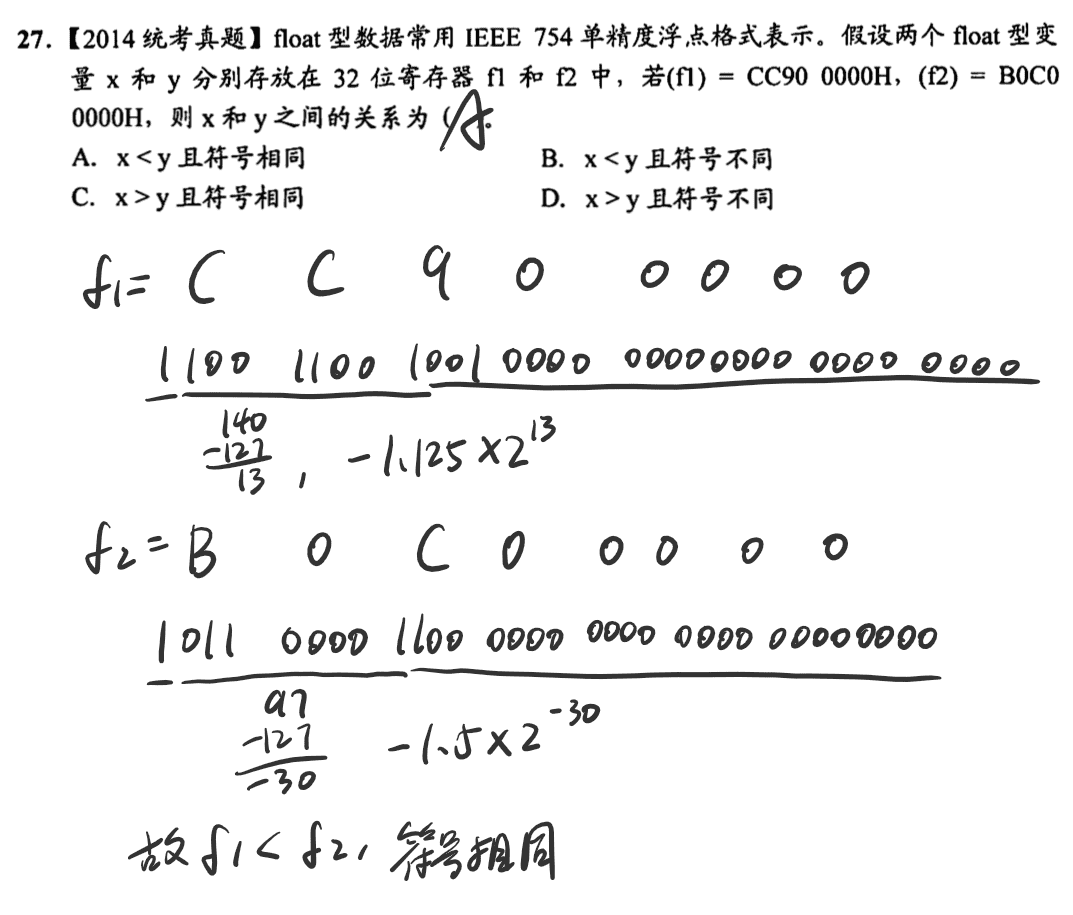 27.【2014 统考真题】float 型数据常用 IEEE 754 单精度浮点格式表示。假设两个 float 型变
量 x 和 y 分别存放在 32 位寄存器 f1 和 f2 中，若(f1) = CC90 0000H，(f2) = B0C0
0000H，则 x 和 y 之间的关系为（A.
A. x<y 且符号相同 B. x<y 且符号不同
C. x>y 且符号相同 D. x>y 且符号不同
f₁= C C 9 0 0 0 0 0
1100 1100 1001 0000 00000000 0000 0000
140
-127
13 , -1.125×2¹³
f₂= B 0 C 0 0 0 0 0
1011 0000 1100 0000 0000 0000 00000000
97
-127
-30
-1.5×2⁻³⁰
故 f₁< f₂, 符号相同